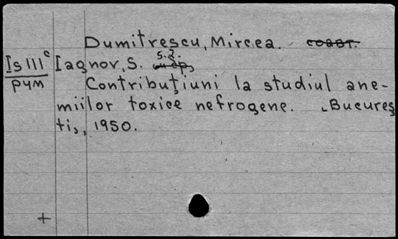 Dumitrescu, Mircea. coavt.
s.2.
Is III c Iagnov, S. și dp,
рум Contribuțiuni la studiul ane-
miilor toxice nefrogene. București,
ti, 1950.
+